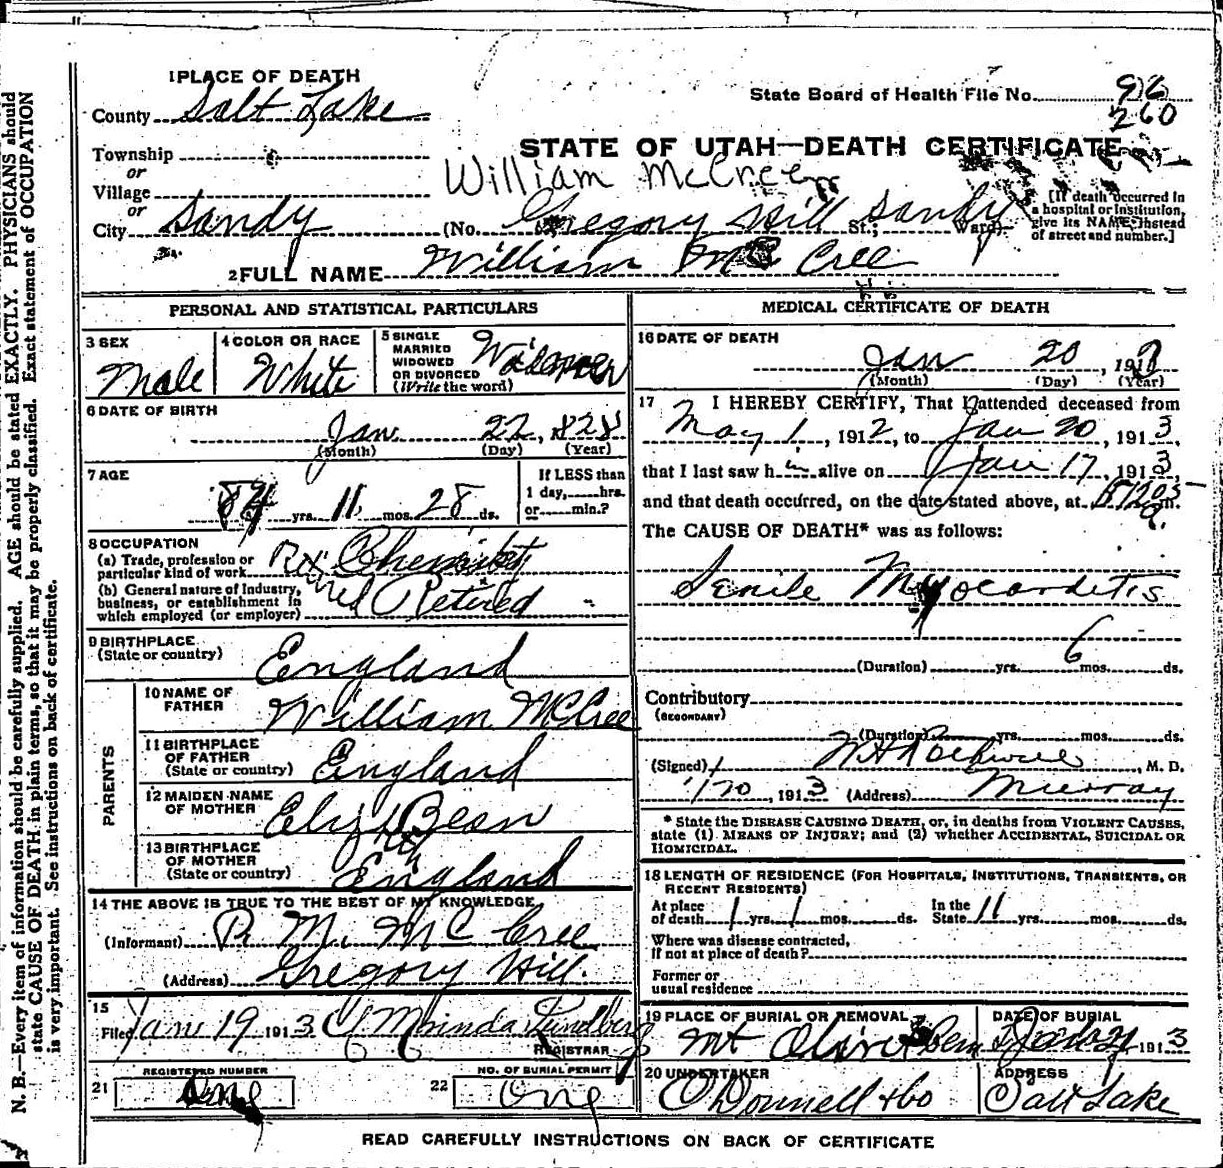 1 PLACE OF DEATH
County Salt Lake
Township
or
Village
or
City Sandy
State Board of Health File No. 96
260
STATE OF UTAH—DEATH CERTIFICATE
William McCree
(No. Gregory Hill St.; Sandy Ward)
[If death occurred in a hospital or institution, give its NAME instead of street and number.]
2 FULL NAME William Mc Cree
PERSONAL AND STATISTICAL PARTICULARS
3 SEX
Male
4 COLOR OR RACE
White
5 SINGLE
MARRIED
WIDOWED
OR DIVORCED
(Write the word)
Widower
6 DATE OF BIRTH
Jan 22, 1828
(Month) (Day) (Year)
7 AGE
84 yrs. 11 mos. 28 ds.
If LESS than
1 day, hrs.
or min.?
8 OCCUPATION
(a) Trade, profession or
particular kind of work Chemist
(b) General nature of Industry,
business, or establishment in
which employed (or employer) Retired
9 BIRTHPLACE
(State or country)
England
PARENTS
10 NAME OF
FATHER
William McCree
11 BIRTHPLACE
OF FATHER
(State or country)
England
12 MAIDEN NAME
OF MOTHER
Bean
13 BIRTHPLACE
OF MOTHER
(State or country)
England
14 THE ABOVE IS TRUE TO THE BEST OF MY KNOWLEDGE
(Informant) R. M. Mc Cree
(Address) Gregory Hill.
15
Filed Jan 19 1913 Lundberg
REGISTRAR
REGISTERED NUMBER
21 One
NO. OF BURIAL PERMIT
22 One
MEDICAL CERTIFICATE OF DEATH
16 DATE OF DEATH
Jan 20, 191
(Month) (Day) (Year)
17 I HEREBY CERTIFY, That I attended deceased from
May 1, 1912, to Jan 20, 1913,
that I last saw him alive on Jan 17, 1913
and that death occurred, on the date stated above, at m.
The CAUSE OF DEATH* was as follows:
Senile Myocarditis
(Duration) yrs. 6 mos. ds.
Contributory
(SECONDARY)
(Duration) yrs. mos. ds.
(Signed) , M. D.
1/20, 1913 (Address) Murray
* State the DISEASE CAUSING DEATH, or, in deaths from VIOLENT CAUSES,
state (1) MEANS OF INJURY; and (2) whether ACCIDENTAL, SUICIDAL OR
HOMICIDAL.
18 LENGTH OF RESIDENCE (FOR HOSPITALS, INSTITUTIONS, TRANSIENTS, OR
RECENT RESIDENTS)
At place
of death 1 yrs. 1 mos. ds. In the
State 11 yrs. mos. ds.
Where was disease contracted,
if not at place of death?
Former or
usual residence
19 PLACE OF BURIAL OR REMOVAL
Mt Olivet Cem
DATE OF BURIAL
1913
20 UNDERTAKER
O'Donnell & Co
ADDRESS
Salt Lake
READ CAREFULLY INSTRUCTIONS ON BACK OF CERTIFICATE
N. B.—Every item of information should be carefully supplied. AGE should be stated EXACTLY. PHYSICIANS should
state CAUSE OF DEATH in plain terms, so that it may be properly classified. Exact statement of OCCUPATION
is very important. See instructions on back of certificate.